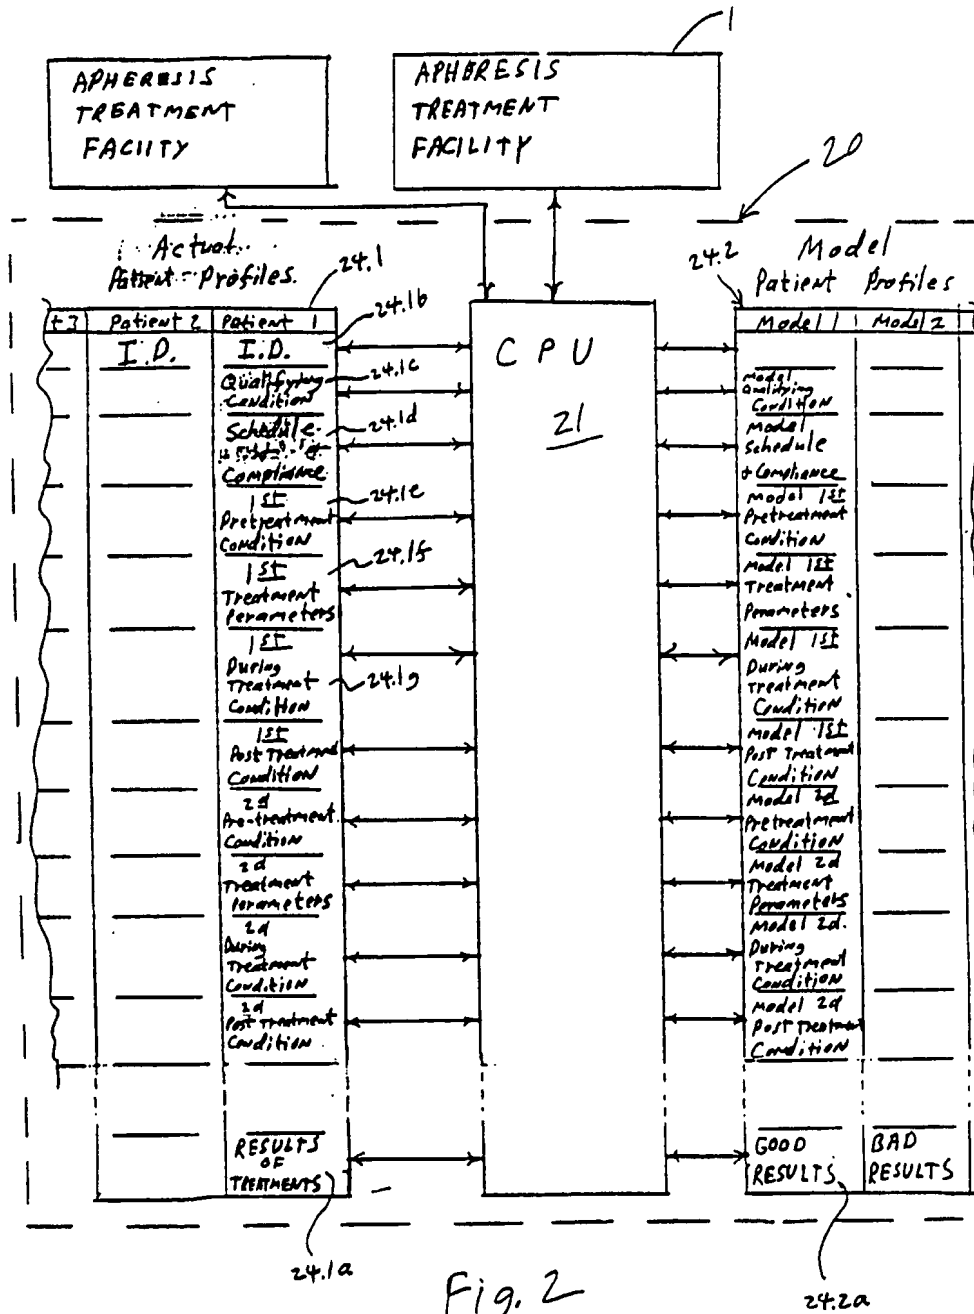 1
APHERESIS
TREATMENT
FACIITY
APHERESIS
TREATMENT
FACILITY
20
Actual
Patient Profiles.
24.1
24.2
Model
Patient Profiles
t3
Patient 2
Patient 1
24.1b
I.D.
I.D.
Qualifying
Condition
24.1c
Schedule
24.1d
Compliance
1st
Pretreatment
Condition
24.1e
1st
Treatment
Perameters
24.1f
1st
During
Treatment
Condition
24.1g
1st
Post Treatment
Condition
2d
Pre-treatment
Condition
2d
Treatment
Perameters
2d
During
Treatment
Condition
2d
Post Treatment
Condition
RESULTS
OF
TREATMENTS
24.1a
CPU
21
Model 1
Model 2
Model
Qualifying
Condition
Model
Schedule
+ Compliance
Model 1st
Pretreatment
Condition
Model 1st
Treatment
Perameters
Model 1st
During
Treatment
Condition
Model 1st
Post Treatment
Condition
Model 2d
Pretreatment
Condition
Model 2d
Treatment
Perameters
Model 2d.
During
Treatment
Condition
Model 2d
Post Treatment
Condition
GOOD
RESULTS
BAD
RESULTS
24.2a
Fig. 2